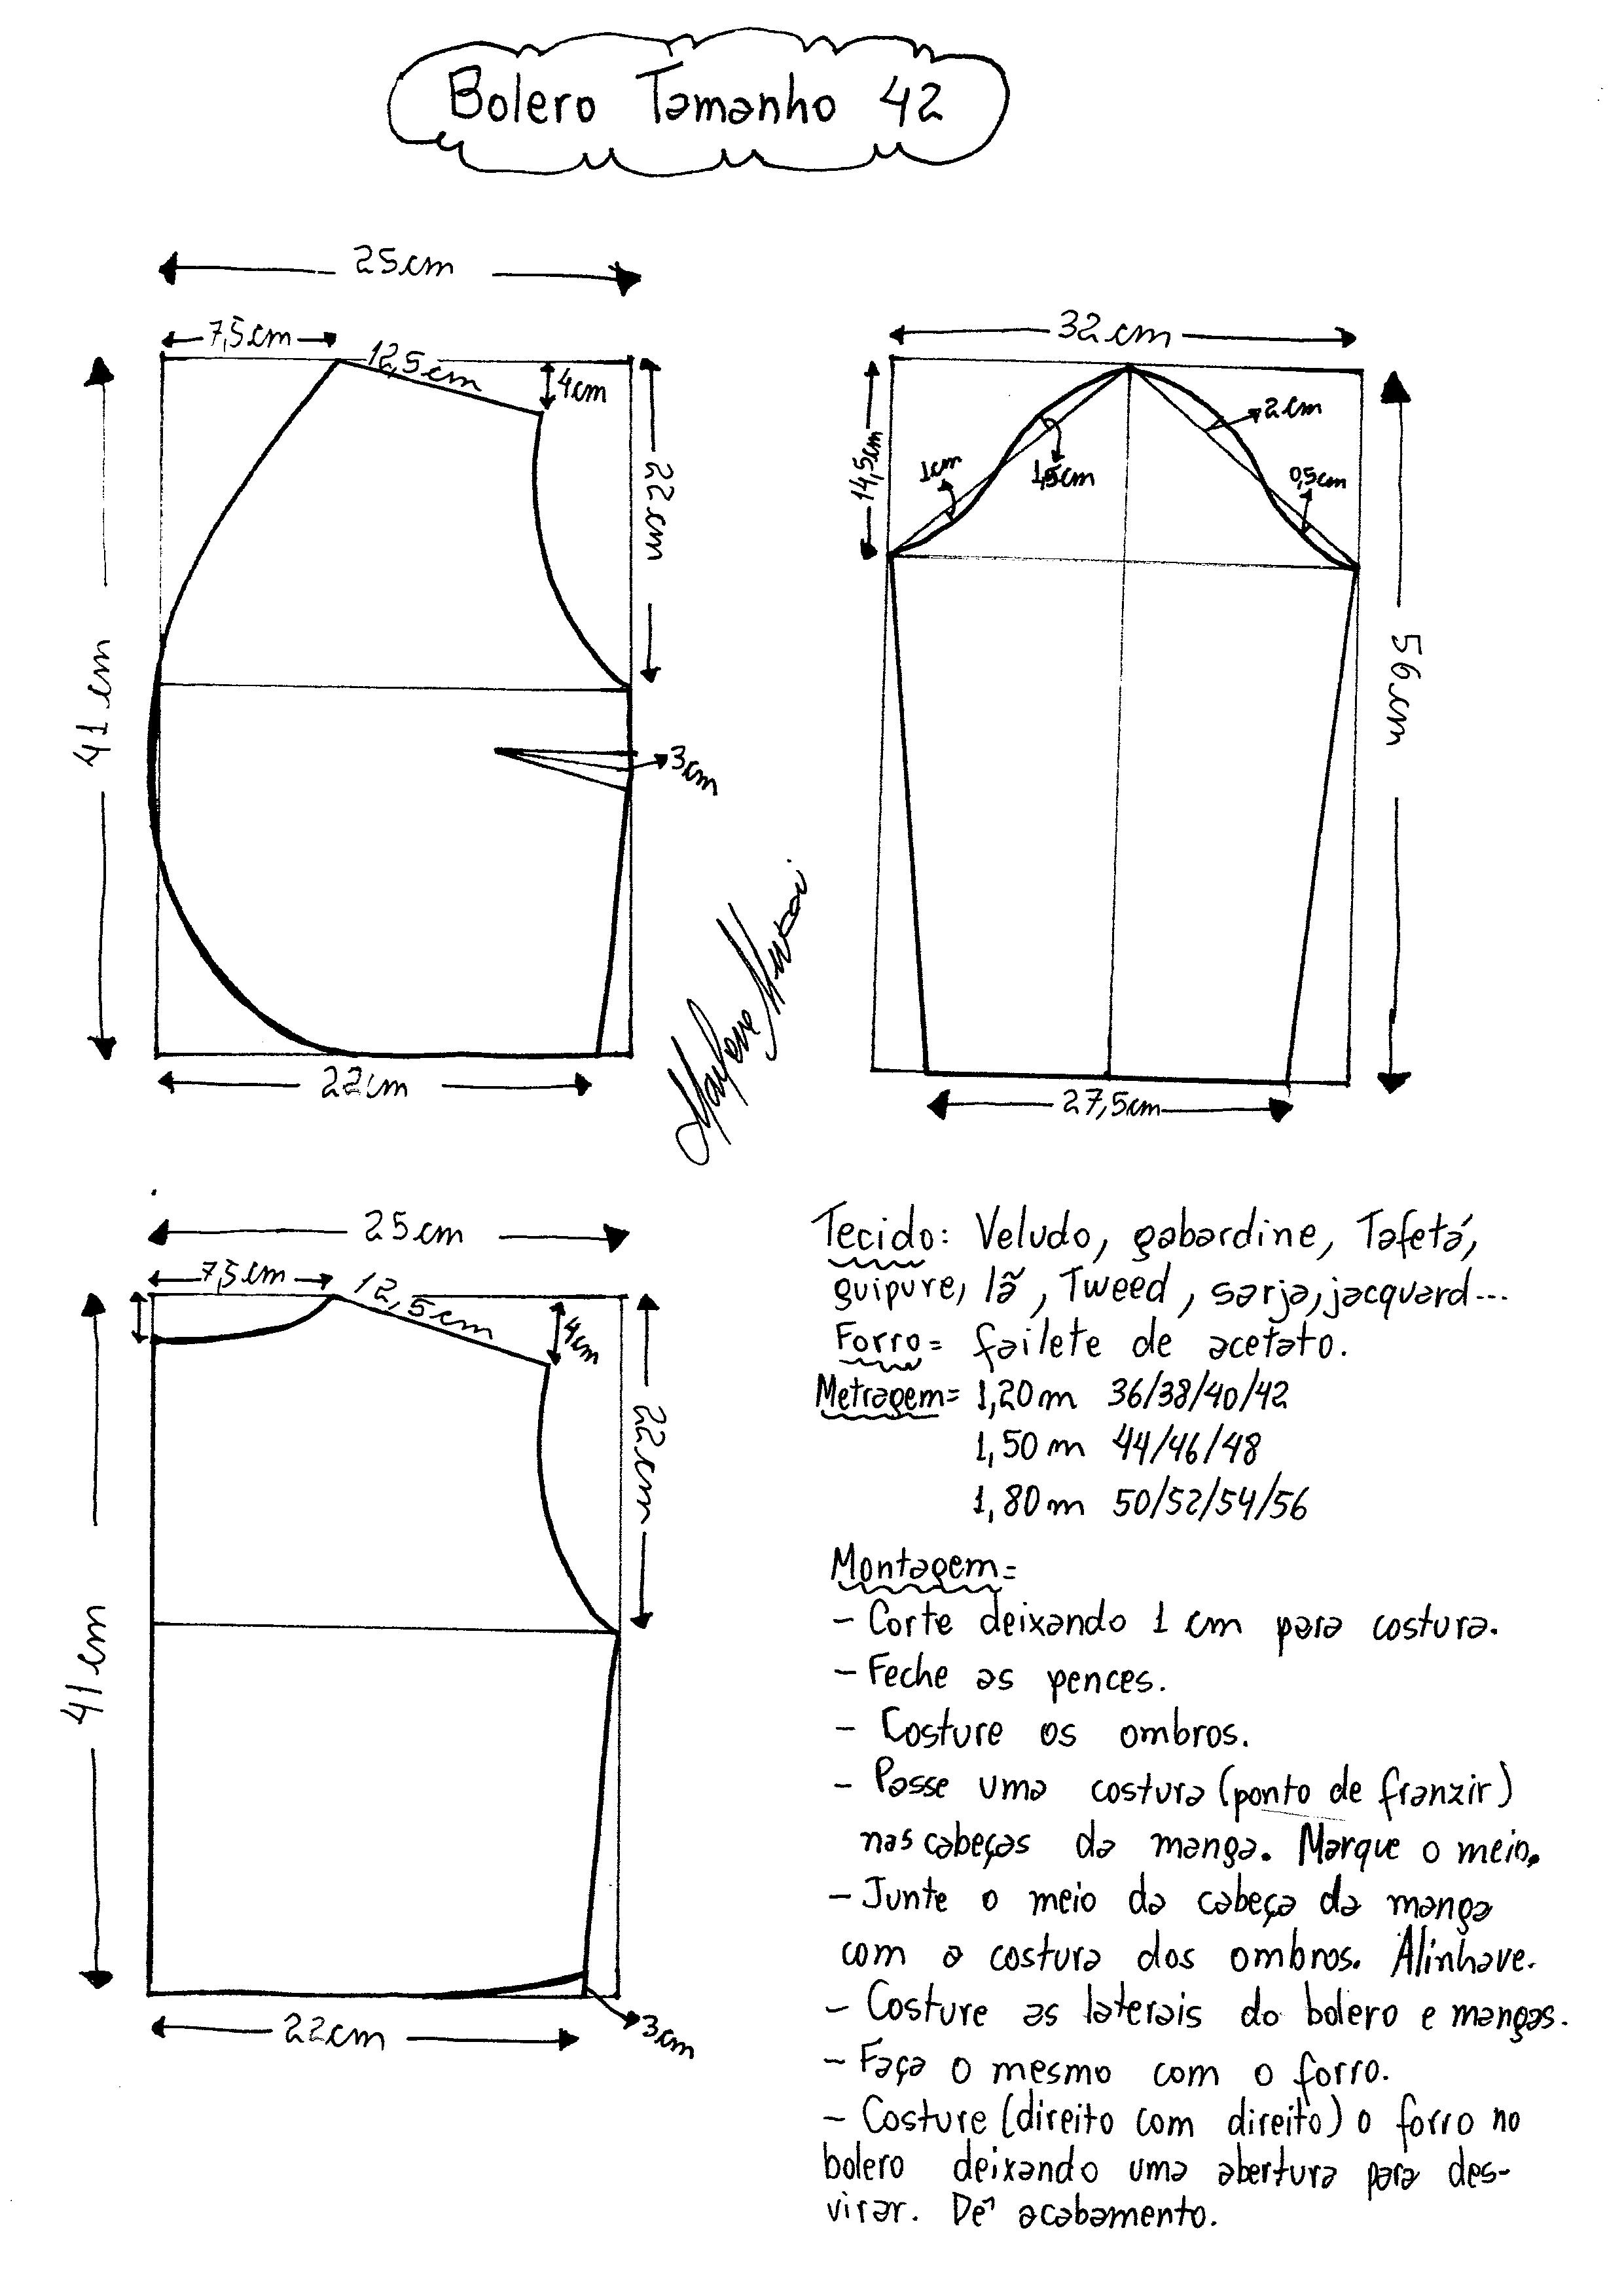 Bolero Tamanho 42
25cm
7,5cm
12,5cm
4cm
22cm
41cm
3cm
22cm
32cm
14,5cm
1cm
1,5cm
2cm
0,5cm
56cm
27,5cm
25cm
7,5cm
12,5cm
4cm
22cm
41cm
22cm
3cm
Tecido: Veludo, gabardine, Tafetá,
guipure, lã, Tweed, sarja, jacquard...
Forro= failete de acetato.
Metragem= 1,20m 36/38/40/42
1,50m 44/46/48
1,80m 50/52/54/56
Montagem=
- Corte deixando 1 cm para costura.
- Feche as pences.
- Costure os ombros.
- Passe uma costura (ponto de franzir)
nas cabeças da manga. Marque o meio.
- Junte o meio da cabeça da manga
com a costura dos ombros. Alinhave.
- Costure as laterais do bolero e mangas.
- Faça o mesmo com o forro.
- Costure (direito com direito) o forro no
bolero deixando uma abertura para des-
virar. Dê acabamento.